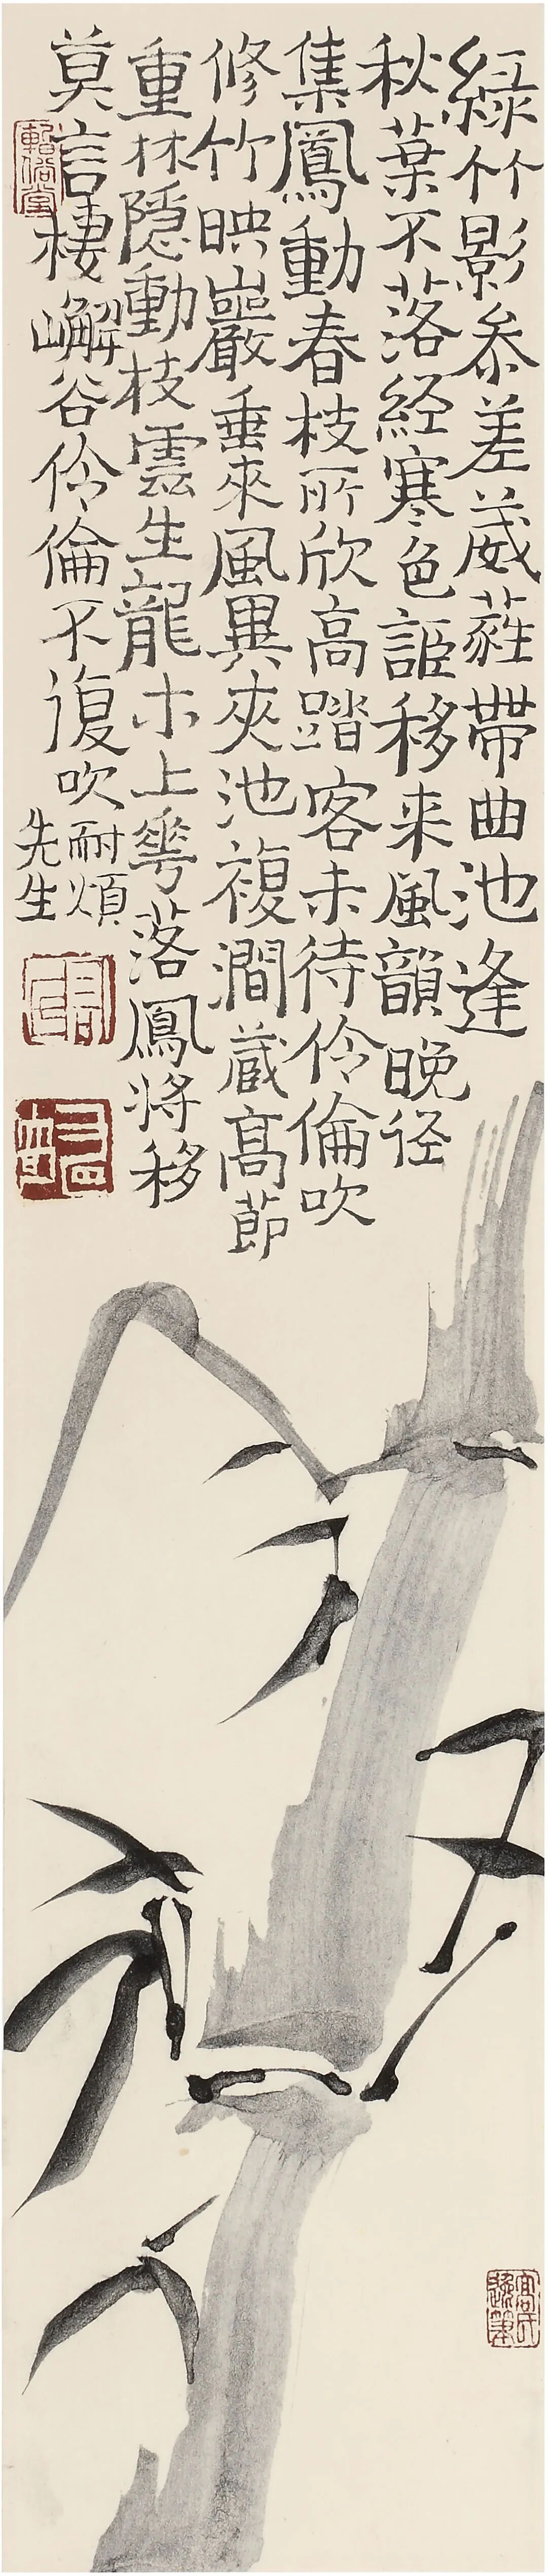 綠竹影參差葳蕤帶曲池逢
秋葉不落經寒色詎移来風韻晚径
集鳳動春枝所欣高蹈客未待伶倫吹
修竹映巖垂來風異夾池複澗藏高節
重林隱動枝雲生龍木上花落鳳將移
莫言棲嶰谷伶倫不復吹
耐煩
先生